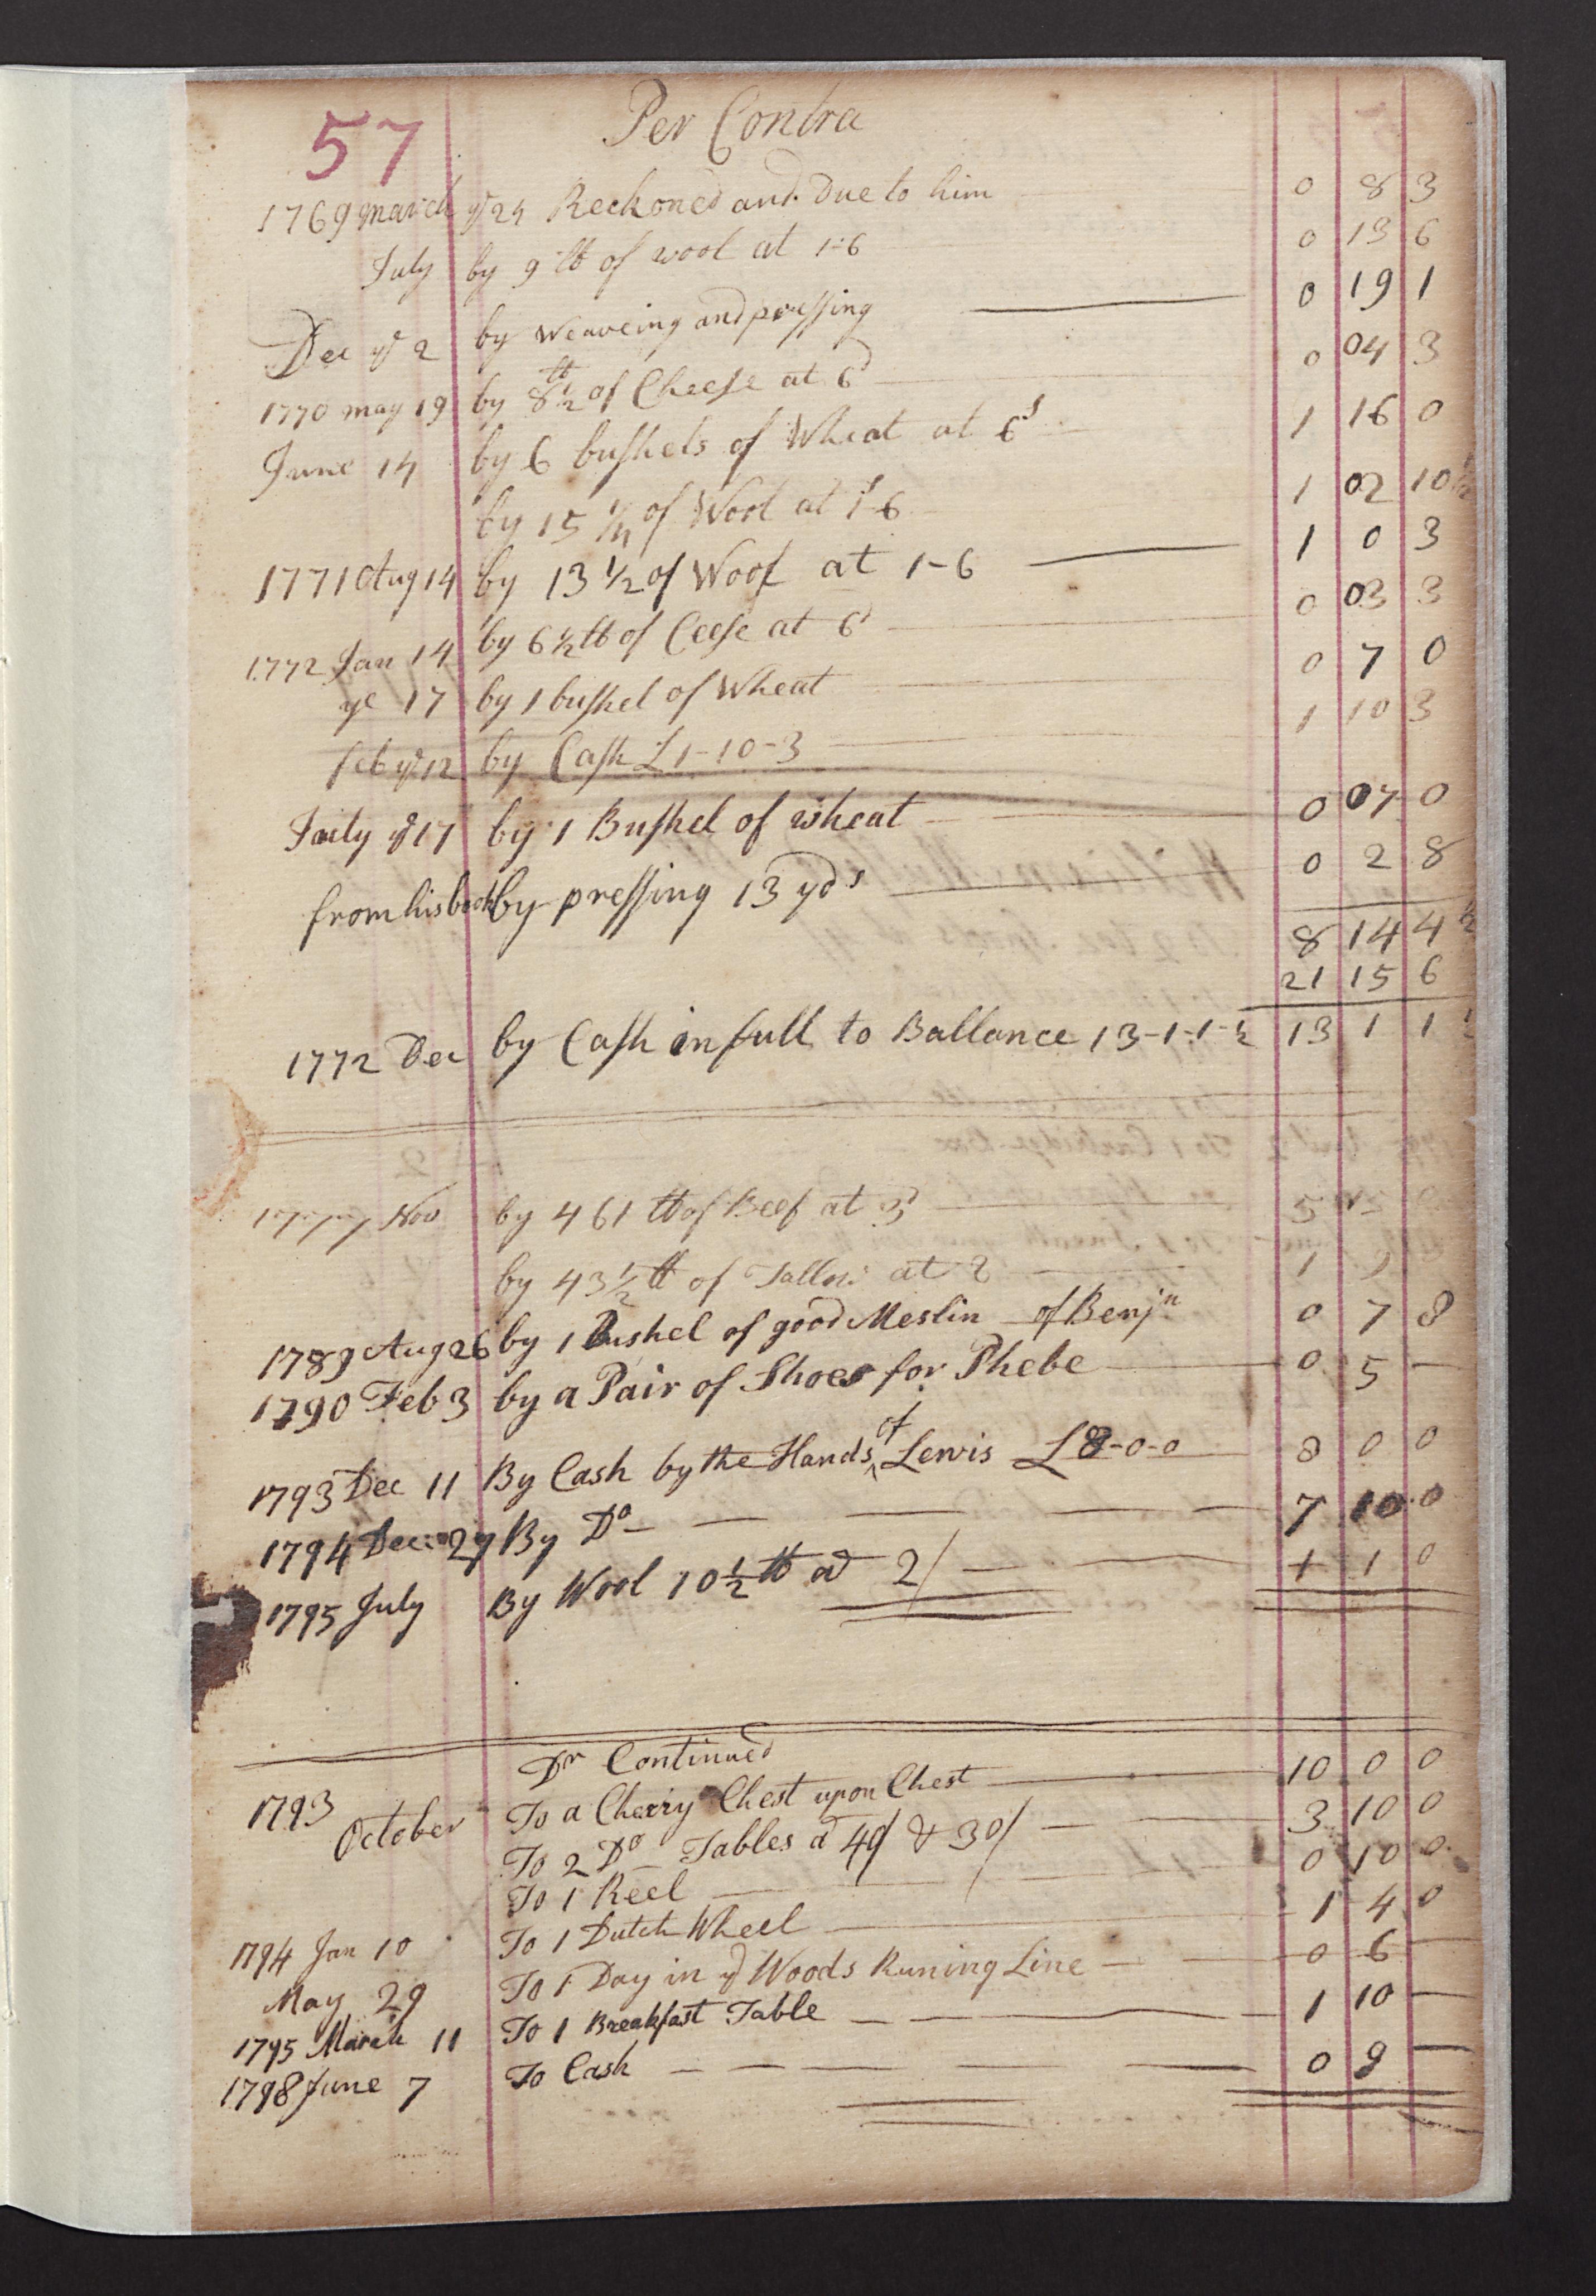 57 Per Contra
1769 march ye 24 Reckoned and Due to him 0 8 3
July by 9 lb of wool at 1-6 0 13 6
Dec ye 2 by Weaveing and pressing 0 19 1
1770 may 19 by 8 1/2 lb of Cheese at 6d 0 04 3
June 14 by 6 bushels of Wheat at 6s 1 16 0
by 15 1/4 of Wool at 1s-6 1 02 10 1/2
1771 Aug 14 by 13 1/2 of Wool at 1-6 1 0 3
1772 Jan 14 by 6 1/2 lb of Ceese at 6d 0 03 3
ye 17 by 1 bushel of Wheat 0 7 0
feb ye 12 by Cash £1-10-3 1 10 3
July ye 17 by 1 Bushel of wheat 0 07 0
from his book by pressing 13 yds 0 2 8
8 14 4 1/2
21 15 6
1772 Dec by Cash in full to Ballance 13-1-1-1/2 13 1 1 1/2
1777 Nov by 461 lb of Beef at 3d 5 15
by 43 1/2 lb of Tallow at 8 1 9
1789 Aug 26 by 1 Bushel of good Meslin of Benjn 0 7 8
1790 Feb 3 by a Pair of Shoes for Phebe 0 5 —
1793 Dec 11 By Cash by the Hands of Lewis £8-0-0 8 0 0
1794 Dec 29 By Do 7 10 0
1795 July By Wool 10 1/2 lb a 2/ 1 1 0
Dr Continued
1793 October To a Cherry Chest upon Chest 10 0 0
To 2 Do Tables a 40/ & 30/ 3 10 0
To 1 Reel 0 10 0
1794 Jan 10 To 1 Dutch Wheel 1 4 0
May 29 To 1 Day in ye Woods Runing Line 0 6 —
1795 March 11 To 1 Breakfast Table 1 10 —
1798 June 7 To Cash 0 9 —